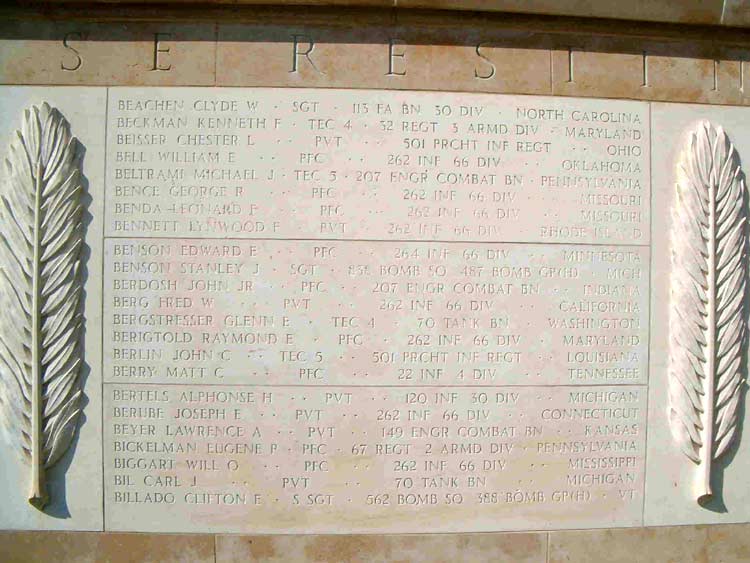 SE REST IN
BEACHEN CLYDE W · SGT · 113 FA BN 30 DIV · NORTH CAROLINA
BECKMAN KENNETH F · TEC 4 · 32 REGT 3 ARMD DIV · MARYLAND
BEISSER CHESTER L · PVT · 501 PRCHT INF REGT · OHIO
BELL WILLIAM E · PFC · 262 INF 66 DIV · OKLAHOMA
BELTRAMI MICHAEL J · TEC 5 · 207 ENGR COMBAT BN · PENNSYLVANIA
BENCE GEORGE R · PFC · 262 INF 66 DIV · MISSOURI
BENDA LEONARD F · PFC · 262 INF 66 DIV · MISSOURI
BENNETT LYNWOOD F · PVT · 262 INF 66 DIV · RHODE ISLAND
BENSON EDWARD E · PFC · 264 INF 66 DIV · MINNESOTA
BENSON STANLEY J · SGT · 838 BOMB SQ 487 BOMB GP(H) · MICH
BERDOSH JOHN JR · PFC · 207 ENGR COMBAT BN · INDIANA
BERG FRED W · PVT · 262 INF 66 DIV · CALIFORNIA
BERGSTRESSER GLENN E · TEC 4 · 70 TANK BN · WASHINGTON
BERIGTOLD RAYMOND E · PFC · 262 INF 66 DIV · MARYLAND
BERLIN JOHN C · TEC 5 · 501 PRCHT INF REGT · LOUISIANA
BERRY MATT C · PFC · 22 INF 4 DIV · TENNESSEE
BERTELS ALPHONSE H · PVT · 120 INF 30 DIV · MICHIGAN
BERUBE JOSEPH E · PVT · 262 INF 66 DIV · CONNECTICUT
BEYER LAWRENCE A · PVT · 149 ENGR COMBAT BN · KANSAS
BICKELMAN EUGENE P · PFC · 67 REGT 2 ARMD DIV · PENNSYLVANIA
BIGGART WILL O · PFC · 262 INF 66 DIV · MISSISSIPPI
BIL CARL J · PVT · 70 TANK BN · MICHIGAN
BILLADO CLIFTON E · S SGT · 562 BOMB SQ 388 BOMB GP(H) · VT